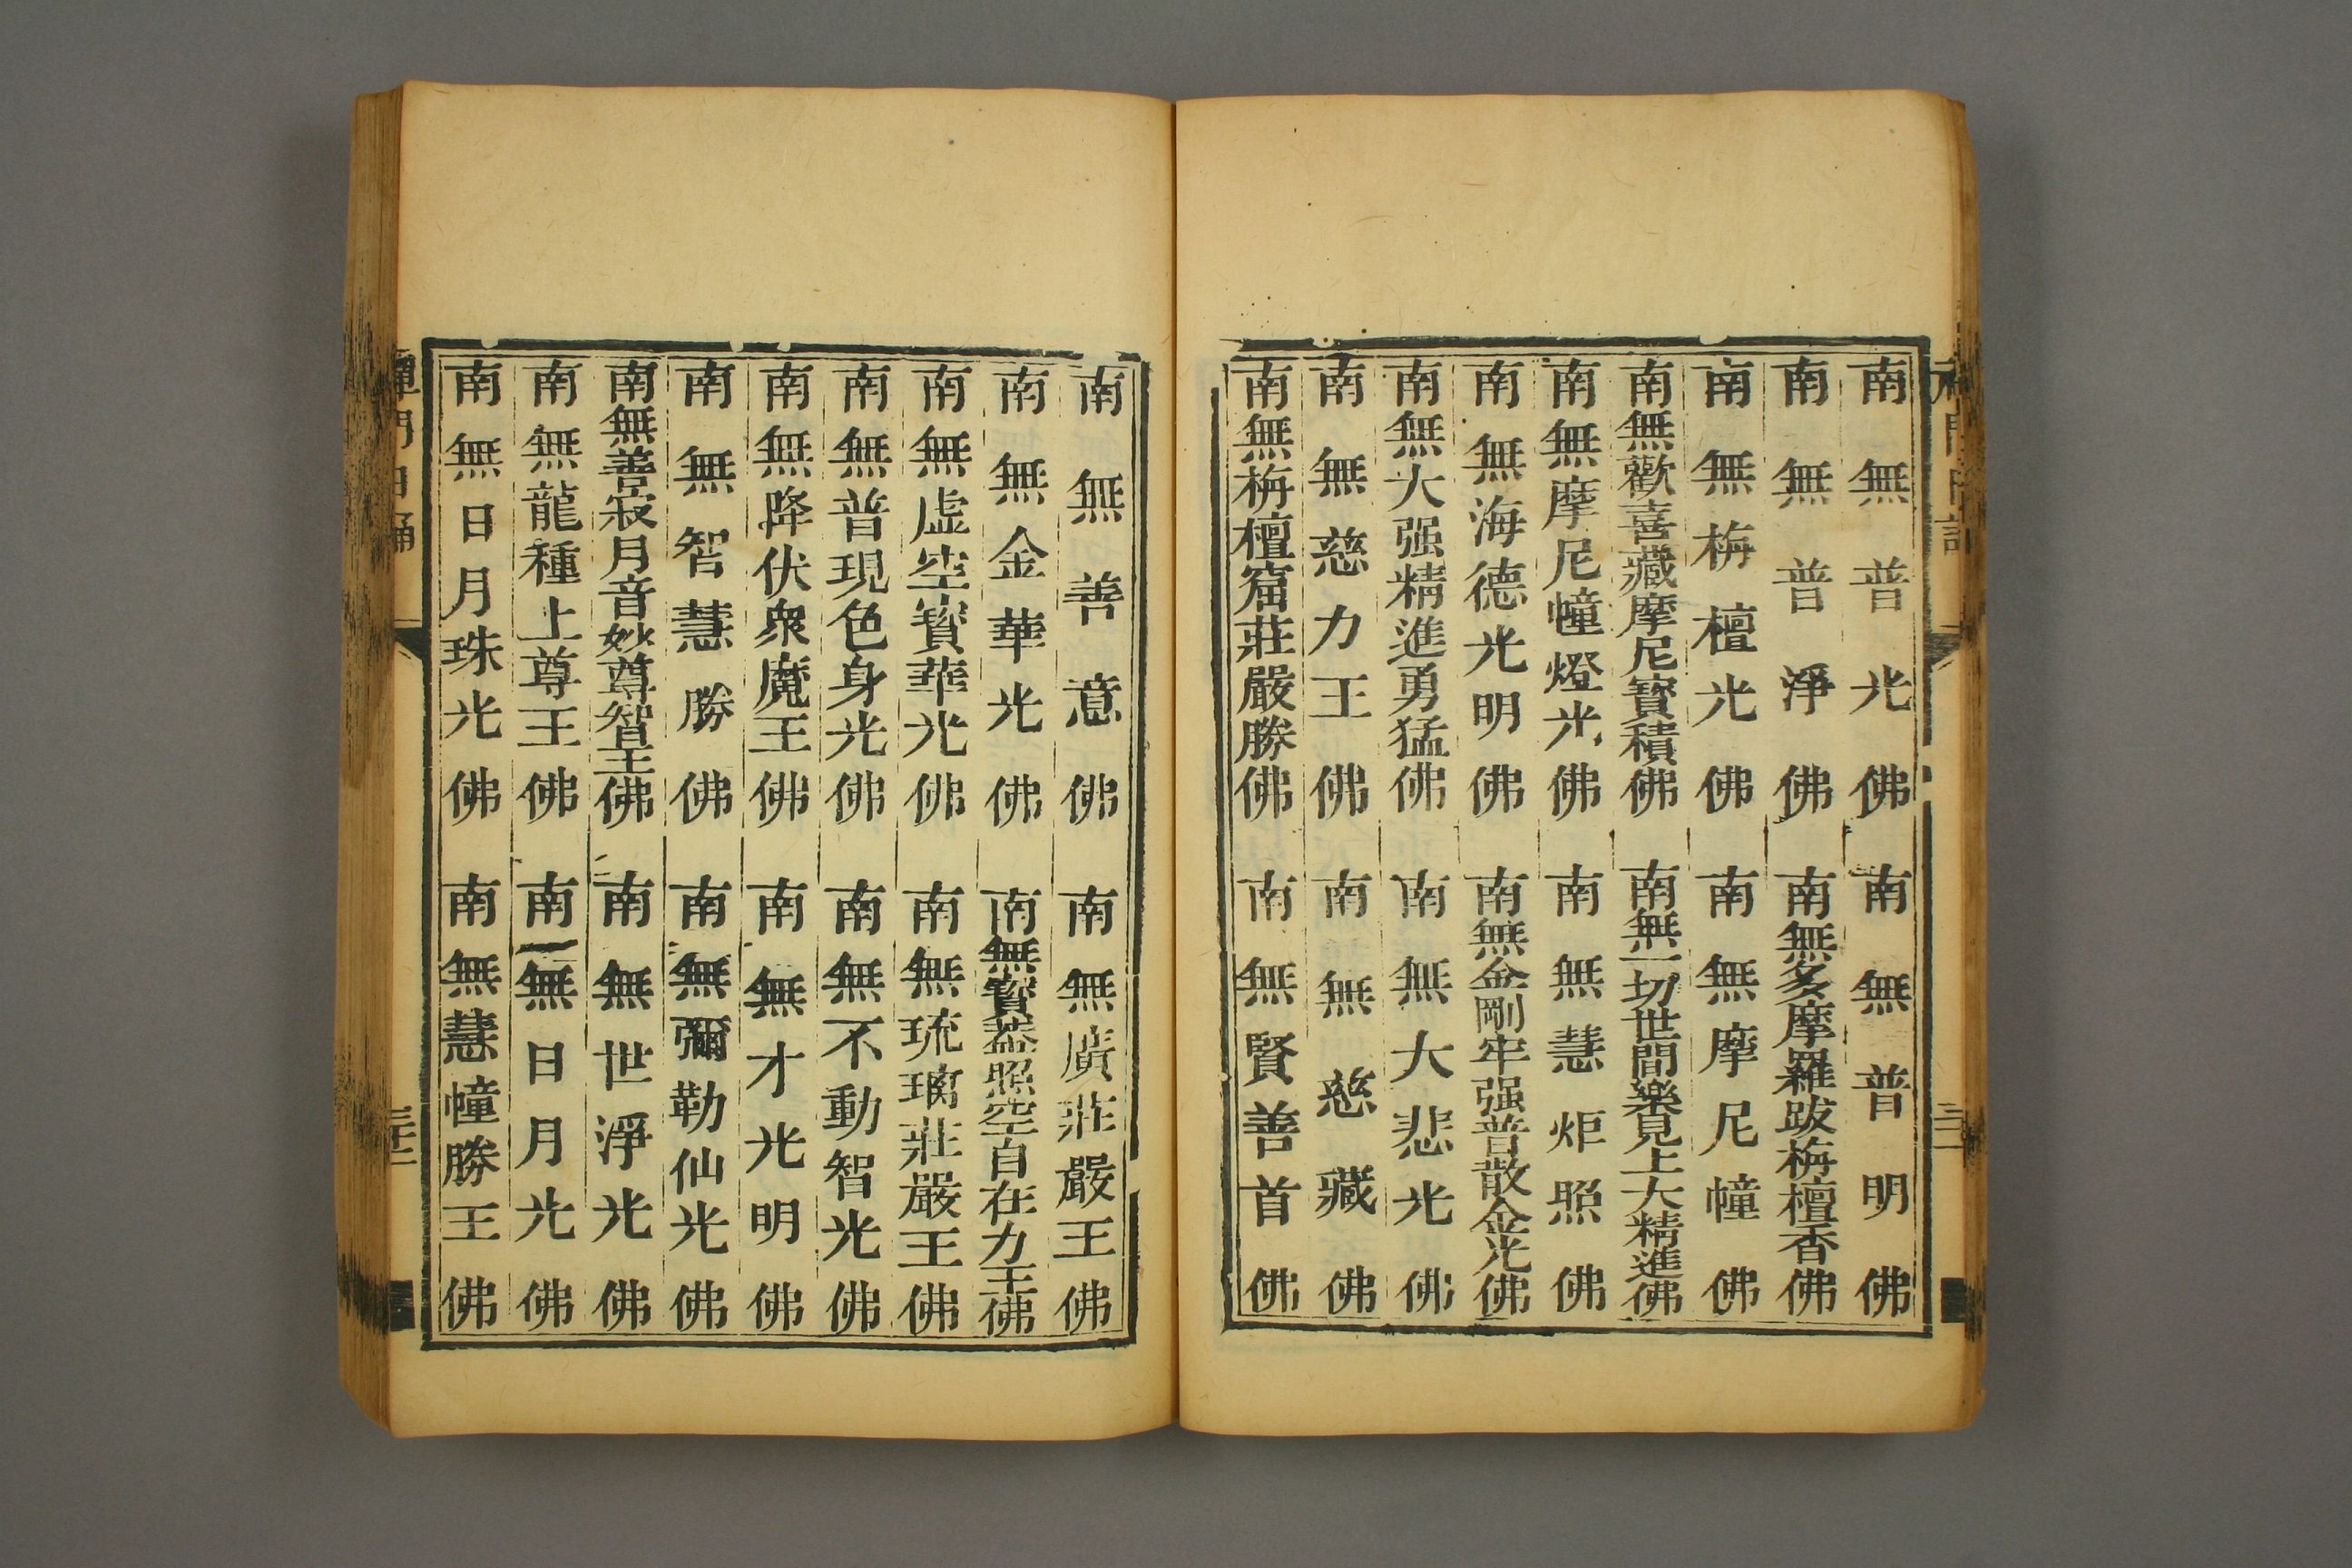 南無普光佛 南無普明佛
南無普淨佛 南無多摩羅跋栴檀香佛
南無栴檀光佛 南無摩尼幢佛
南無歡喜藏摩尼寳積佛 南無一切世間樂見上大精進佛
南無摩尼幢燈光佛 南無慧炬照佛
南無海德光明佛 南無金剛牢强普散金光佛
南無大强精進勇猛佛 南無大悲光佛
南無慈力王佛 南無慈藏佛
南無栴檀窟莊嚴勝佛 南無賢善首佛
南無善意佛 南無廣莊嚴王佛
南無金華光佛 南無寳葢照空自在力王佛
南無虛空寳華光佛 南無琉璃莊嚴王佛
南無普現色身光佛 南無不動智光佛
南無降伏衆魔王佛 南無才光明佛
南無智慧勝佛 南無彌勒仙光佛
南無善寂月音妙尊智王佛 南無世淨光佛
南無龍種上尊王佛 南無日月光佛
南無日月珠光佛 南無慧幢勝王佛
禪門日誦